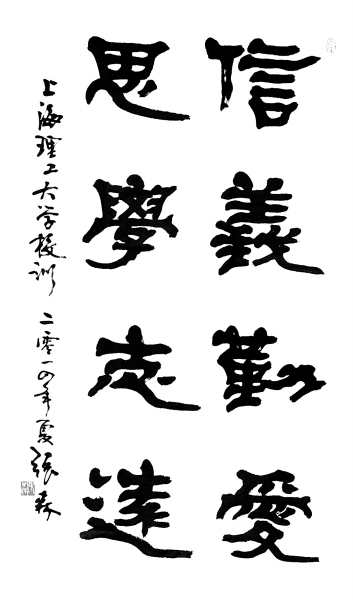 信義勤愛
思學志遠
上海理工大学校训 二零一四年夏 張森